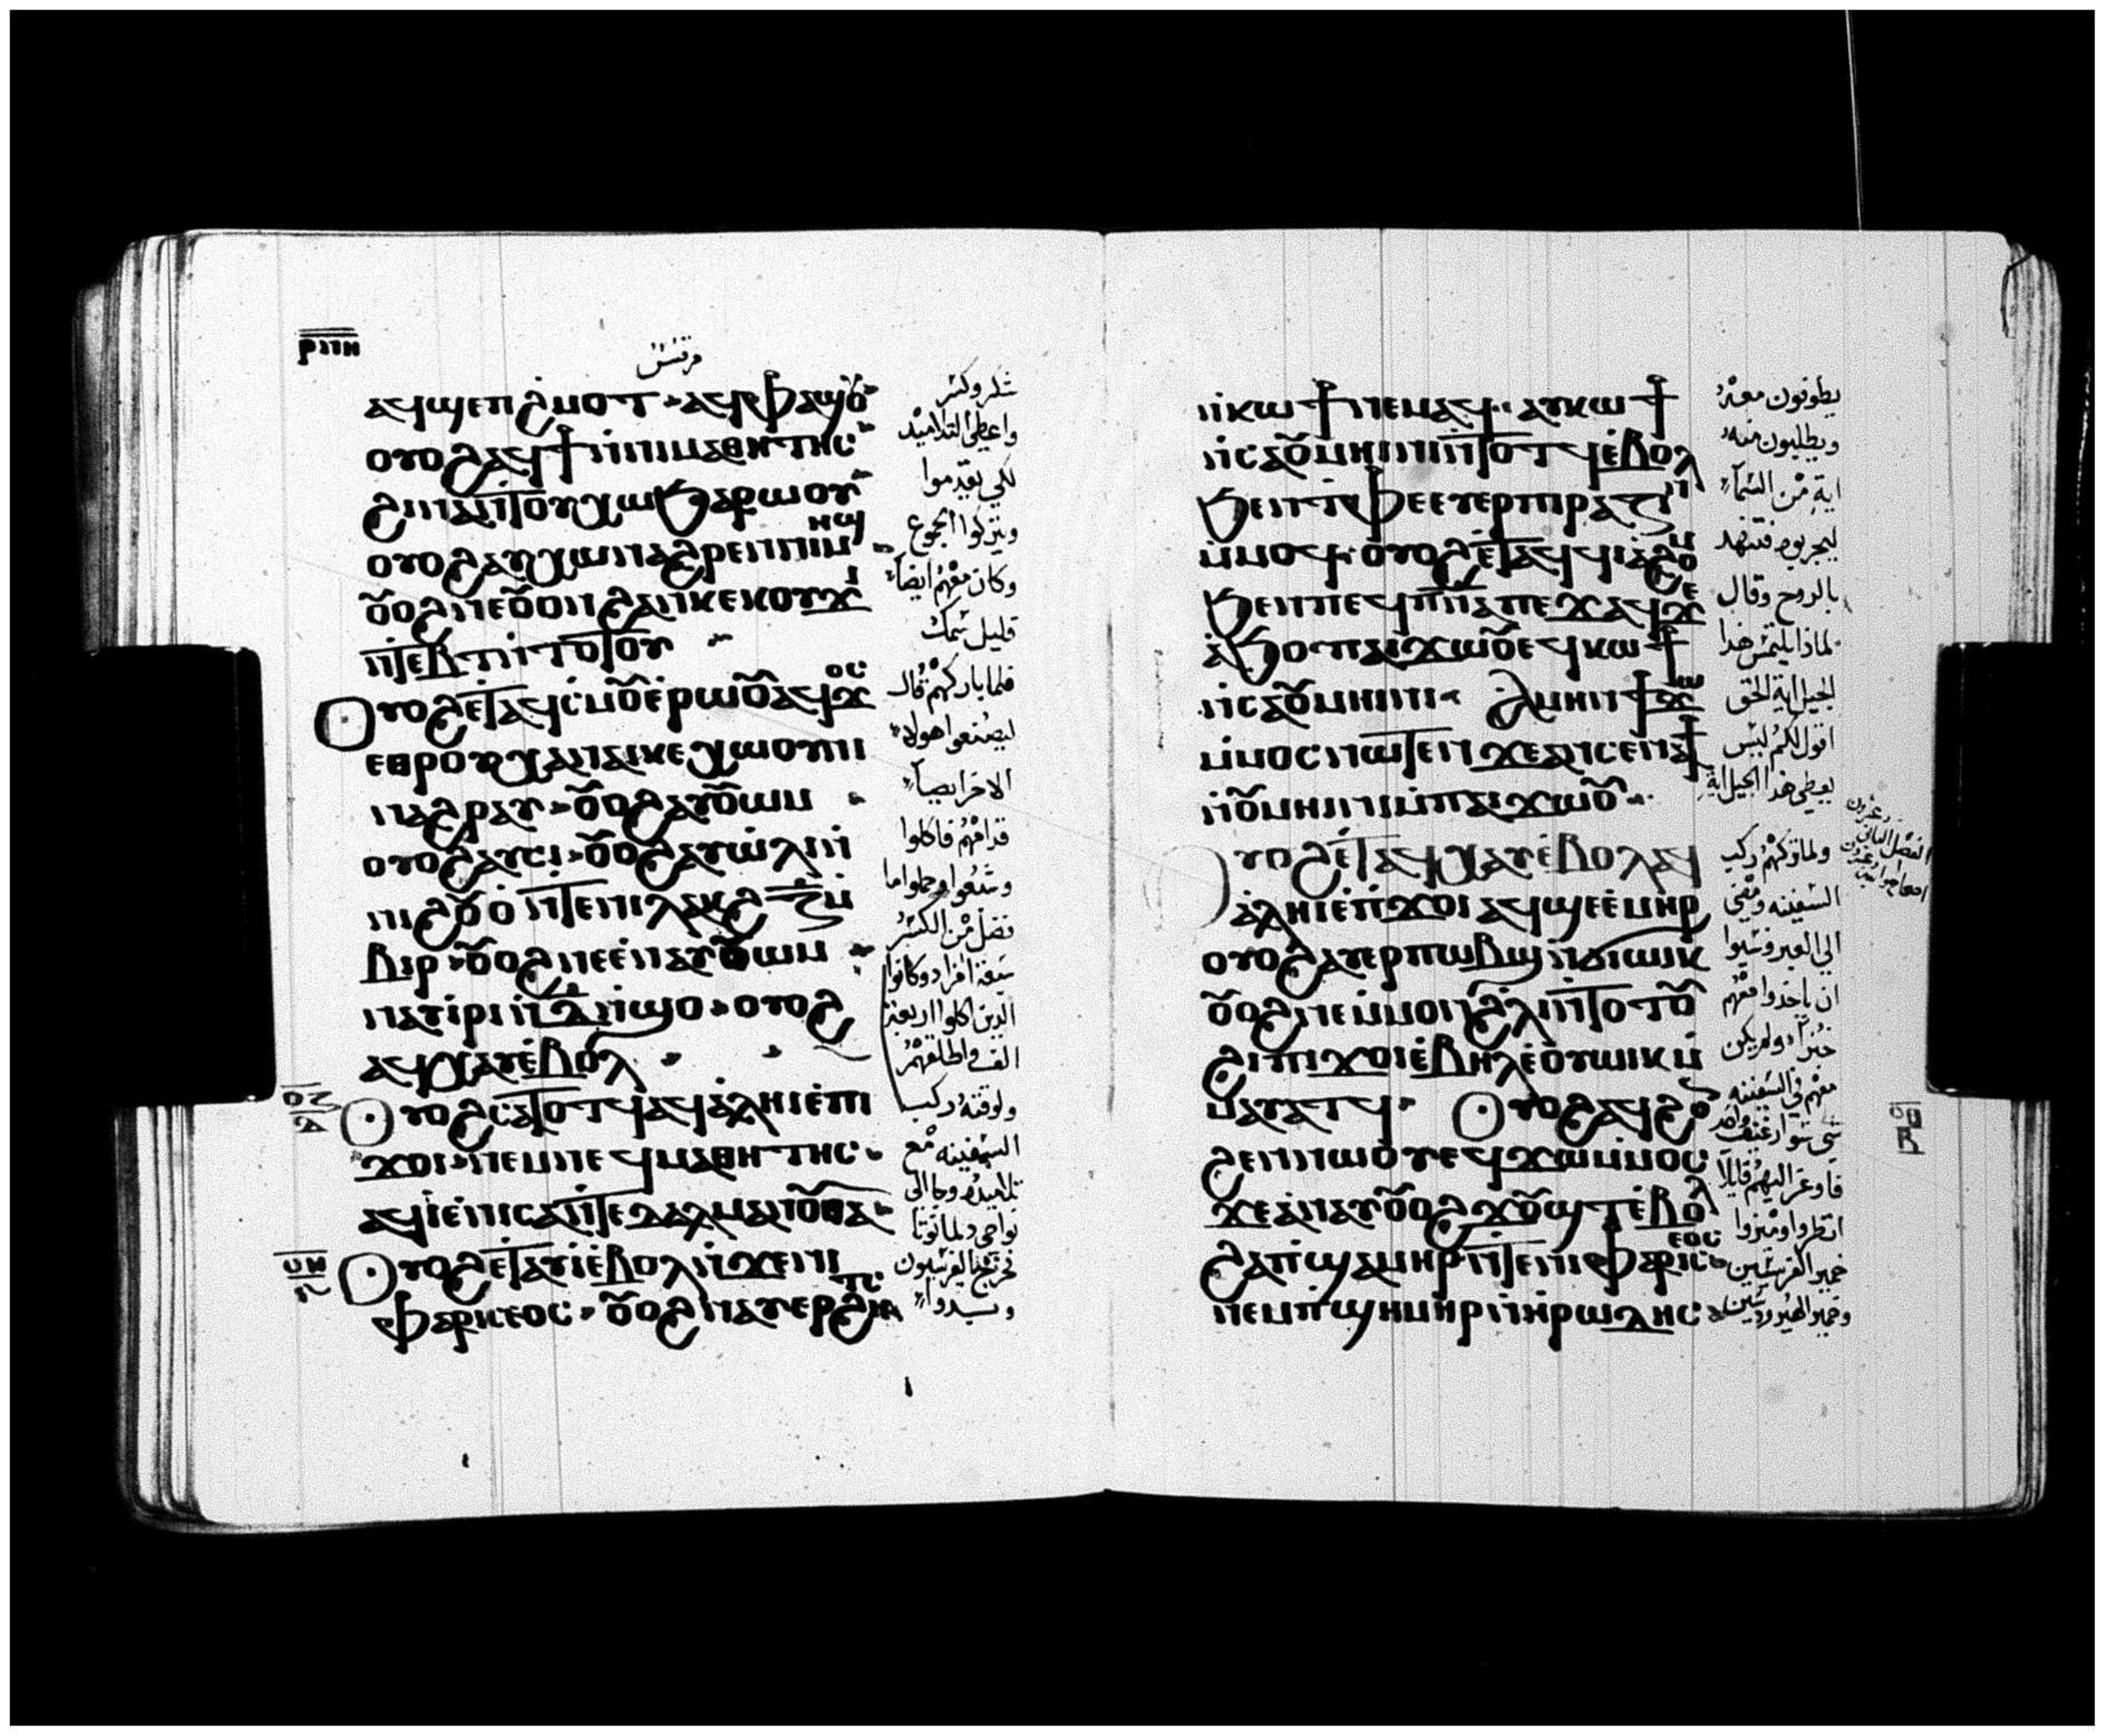 ⲣⲡⲏ
مرقس
ⲁϥϣⲉⲡϩⲙⲟⲧ ⲁϥⲫⲁϣⲟⲩ
ⲟⲩⲟϩ ⲁϥϯⲛⲛⲓⲙⲁⲑⲏⲧⲏⲥ
ϩⲓⲛⲁⲛⲧⲟⲩⲭⲱϧⲁⲣⲱⲟⲩ
ⲟⲩⲟϩ ⲁⲩⲭⲱⲛⲁϩⲣⲉⲛⲡⲓⲙⲏϣ
ⲟⲩⲟϩ ⲛⲉⲟⲩⲟⲛ ϩⲁⲛⲕⲉⲕⲟⲩϫⲓ
ⲛⲧⲉⲃⲧ ⲛⲧⲟⲧⲟⲩ
ⲟⲩⲟϩ ⲉⲧⲁϥⲥⲙⲟⲩ ⲉⲣⲱⲟⲩ ⲁϥϫⲟⲥ
ⲉⲑⲣⲟⲩⲭⲁ ⲛⲁⲓⲕⲉⲭⲱⲟⲩⲛⲓ
ⲛⲁϩⲣⲁⲩ ⲟⲩⲟϩ ⲁⲩⲟⲩⲱⲙ
ⲟⲩⲟϩ ⲁⲩⲥⲓ ⲟⲩⲟϩ ⲁⲩⲱⲗⲓ ⲙ
ⲡⲓϩⲟⲩⲟ ⲛⲧⲉⲛⲓⲗⲁⲕϩ ⲍ ⲙ
ⲃⲓⲣ ⲟⲩⲟϩ ⲛⲉ ⲉⲛⲁⲩⲟⲩⲱⲙ
ⲛⲁⲩⲓⲣⲓ ⲛⲇ ⲛϣⲟ ⲟⲩⲟϩ
ⲁϥⲭⲁⲩ ⲉⲃⲟⲗ
ⲟⲩⲟϩ ⲥⲁⲧⲟⲧϥ ⲁϥⲁⲗⲏⲓ ⲉⲡⲓ
ϫⲟⲓ ⲛⲉⲙ ⲛⲉϥⲙⲁⲑⲏⲧⲏⲥ
ⲁϥⲓ ⲉⲛⲓⲥⲁ ⲛⲧⲉ ⲇⲁⲗⲙⲁⲛⲟⲩⲑⲁ
ⲟⲩⲟϩ ⲉⲧⲁⲩⲓ ⲉⲃⲟⲗ ⲛϫⲉⲛⲓ
ⲫⲁⲣⲓⲥⲉⲟⲥ ⲟⲩⲟϩ ⲛⲁⲩⲉⲣϩⲏⲧⲥ
شكر وكسر
واعطى التلاميذ
لكي يقدموا
ويتركوا الجموع
وكان معهم ايضا
قليل سمك
فلما باركهم قال
ليضعوا هولاء
الاخر ايضا
قدامهم فاكلوا
وشبعوا وحملوا ما
فضل من الكسر
سبعة افراد وكانوا
الذين اكلوا اربعة
الف واطلقهم
ولوقته ركب
السفينه مع
تلاميذه وجا الى
نواحي دلمانوتا
فخرج الفريسيون
وبدوا
ⲛⲕⲱϯ ⲛⲉⲙⲁϥ ⲁⲩⲕⲱϯ
ⲛⲥⲁⲟⲩⲙⲏⲓⲛⲓ ⲛⲧⲟⲧϥ ⲉⲃⲟⲗ
ϧⲉⲛ ⲧⲫⲉ ⲉⲩⲉⲣⲡⲓⲣⲁⲍⲓⲛ
ⲙⲙⲟϥ ⲟⲩⲟϩ ⲉⲧⲁϥϥⲓⲁϩⲟⲙ
ϧⲉⲛ ⲡⲉϥⲡⲛⲁ ⲡⲉϫⲁϥ ϫⲉ
ⲁϧⲟ ⲡⲁⲓϫⲱⲟⲩ ⲉϥⲕⲱϯ
ⲛⲥⲁⲟⲩⲙⲏⲓⲛⲓ ⲁⲙⲏⲛ ϯϫⲱ
ⲙⲙⲟⲥ ⲛⲱⲧⲉⲛ ϫⲉ ⲁⲛⲥⲉⲛⲁϯ
ⲛⲟⲩⲙⲏⲓⲛⲓ ⲙⲡⲁⲓϫⲱⲟⲩ
ⲟⲩⲟϩ ⲉⲧⲁϥⲭⲁⲩ ⲉⲃⲟⲗ ⲁϥ
ⲁⲗⲏⲓ ⲉⲡϫⲟⲓ ⲁϥϣⲉ ⲉⲙⲏⲣ
ⲟⲩⲟϩ ⲁⲩⲉⲣⲡⲱⲃϣ ⲛϭⲓⲱⲓⲕ
ⲟⲩⲟϩ ⲛⲉⲙⲙⲟⲛ ϩⲗⲓ ⲛⲧⲟⲧⲟⲩ
ϩⲓ ⲡⲓϫⲟⲓ ⲉⲃⲏⲗ ⲉⲟⲩⲱⲓⲕ ⲙ
ⲙⲁⲩⲁⲧϥ ⲟⲩⲟϩ ⲁϥϩⲟⲛ
ϩⲉⲛ ⲛⲱⲟⲩ ⲉϥϫⲱ ⲙⲙⲟⲥ
ϫⲉ ⲁⲛⲁⲩ ⲟⲩⲟϩ ϫⲟⲩϣⲧ ⲉⲃⲟⲗ
ϩⲁ ⲡϣⲉⲙⲏⲣ ⲛⲧⲉ ⲛⲓⲫⲁⲣⲓⲥⲉⲟⲥ
ⲛⲉⲙ ⲡϣⲏⲙⲏⲣ ⲛⲏⲣⲱⲇⲏⲥ
يطوفون معه
ويطلبون منه
اية من السما
ليجربوه فتنهد
بالروح وقال
لماذا يلتمس هذا
الجيل اية الحق
اقول لكم ليس
يعطي هذا الجيل اية
ولما تركهم ركب
السفينه ومضى
الى العبر ونسيوا
ان ياخذوا معهم
خبزا ولم يكن
معهم في السفينه
شي سوا رغيف واحد
فاوعز اليهم قايلا
انظروا وميزوا
خمير الفريسيين
وخمير الهيروديين